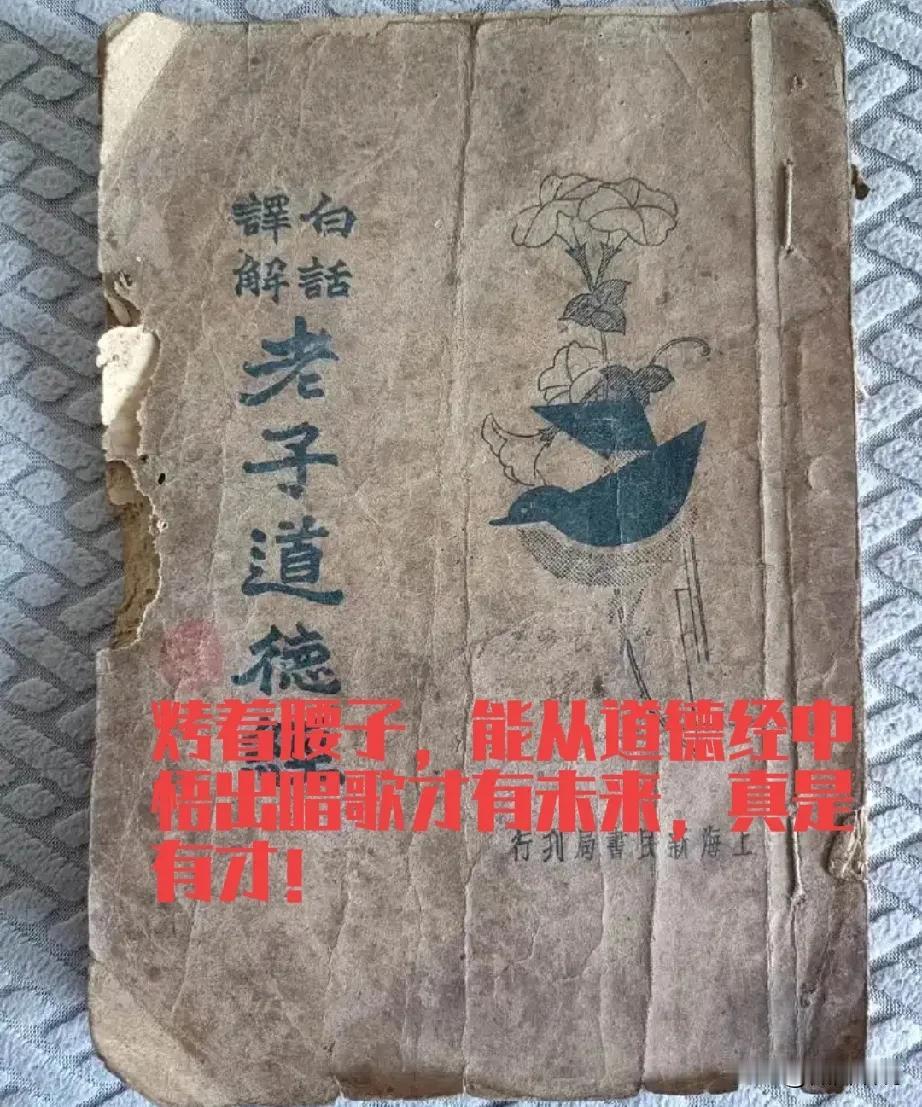 白話
譯解
老子道德
上海新民書局刊行
烤着腰子，能从道德经中
悟出唱歌才有未来，真是
有才！